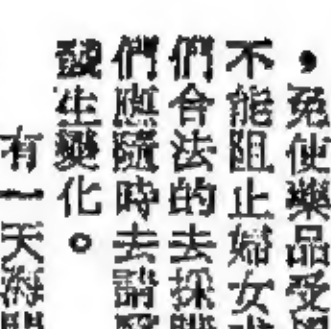 ，免使藥品受
不能阻止婦女
們合法的去採
們應隨時去請
發生變化。
有一天海